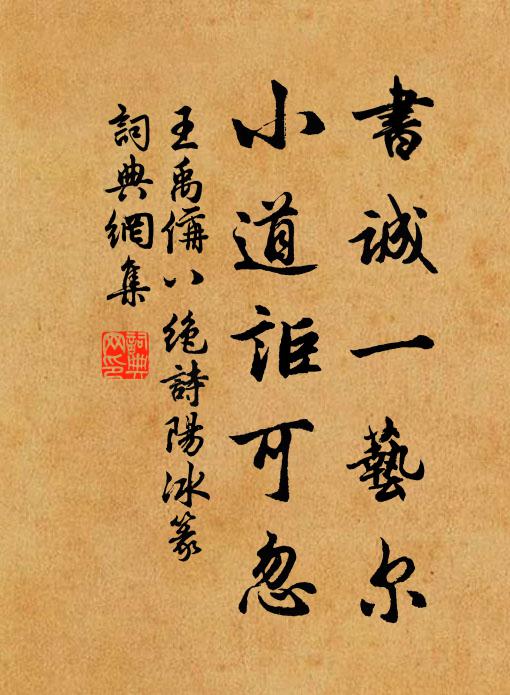 書誠一藝尔
小道詎可忽
王禹偁八绝詩陽冰篆
詞典網集
詞典
网印